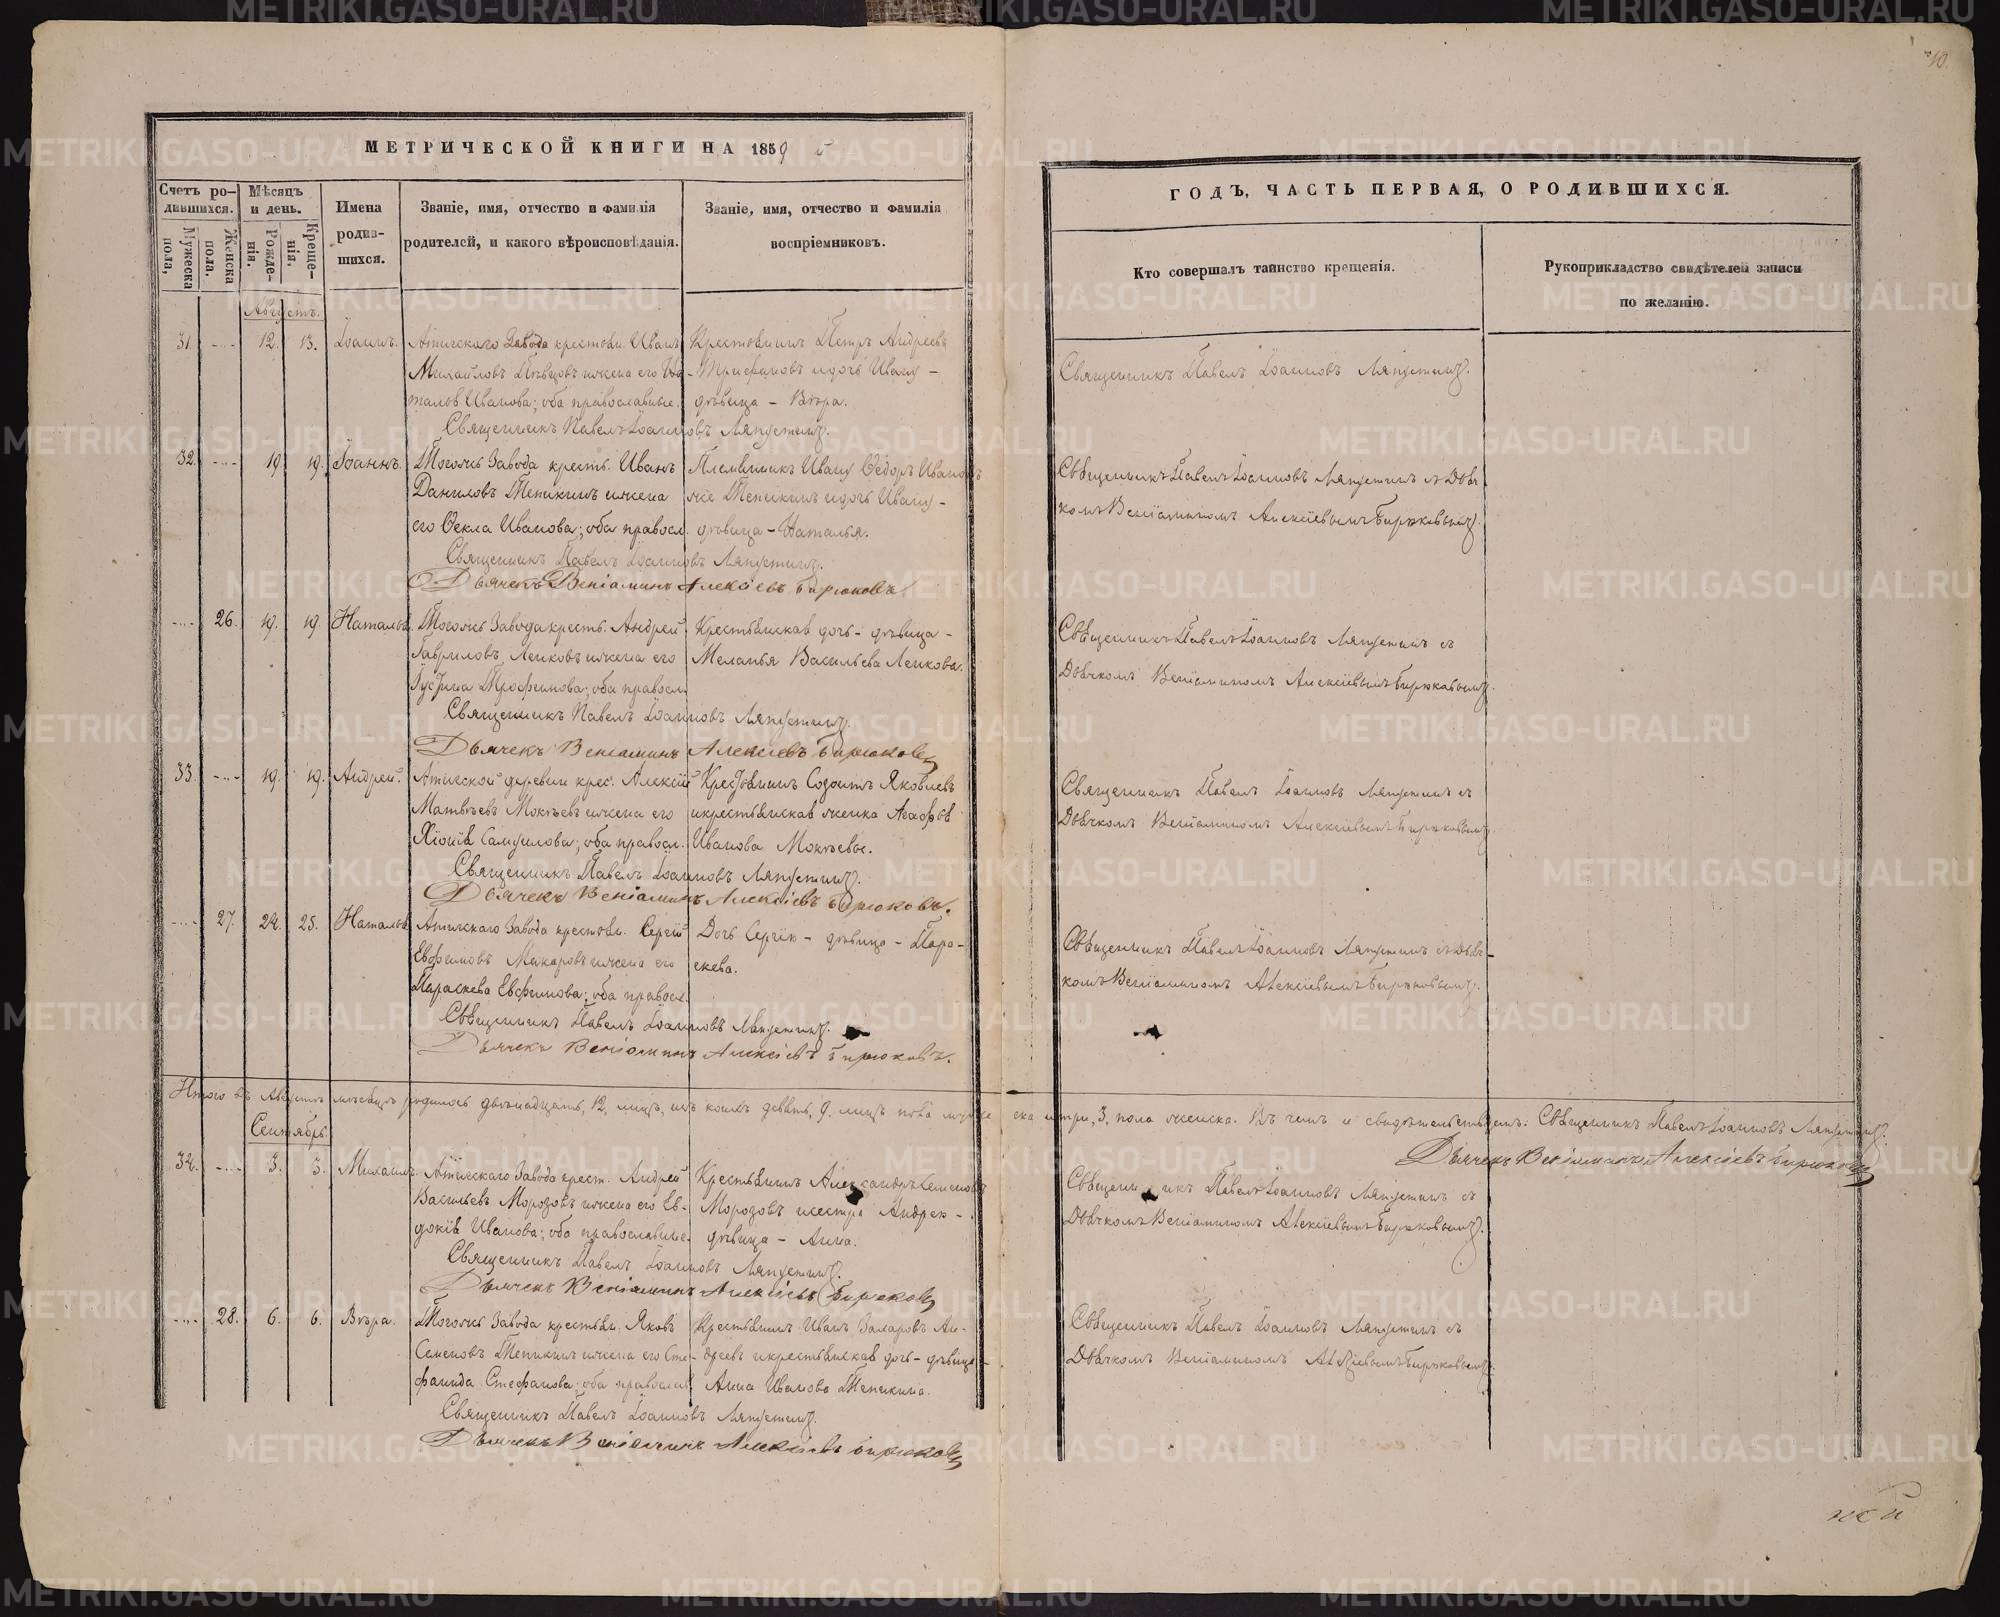 10.
МЕТРИЧЕСКОЙ КНИГИ НА 1859
Счетъ ро-
дившихся.
Мужеска
пола,
Женска
пола.
Мѣсяцъ
и день.
Рожде-
нія.
Креще-
нія,
Имена
родив-
шихся.
Званіе, имя, отчество и фамилія
родителей, и какого вѣроисповѣданія.
Званіе, имя, отчество и фамилія
воспріемниковъ.
Августъ.
31. 12. 13. Іоаннъ. Атигскаго Завода крестьян. Иванъ
Михайловъ Пѣвцовъ и жена его На-
талья Иванова; оба православные.
Крестьянинъ Петръ Андреевъ
Трифановъ и дочь Ивану
дѣвица - Вѣра.
Священникъ Павелъ Іоанновъ Ляпустинъ.
32. 19. 19. Іоаннъ. Тогожъ Завода кресть. Иванъ
Даниловъ Тепикинъ и жена
его Ѳекла Иванова; оба правосл.
Племянникъ Ивану Ѳедоръ Иванов
Тепикинъ и дочь Ивану -
дѣвица - Наталья.
Священникъ Павелъ Іоанновъ Ляпустинъ.
Дьячекъ Веніаминъ Алексіевъ Бирюковъ
26. 19. 19. Наталья. Тогожъ Завода кресть. Андрей
Гавриловъ Лепковъ и жена его
Устина Трофимова; оба правосл.
Крестьянская дочь - дѣвица -
Меланья Васильева Лепкова.
Священникъ Павелъ Іоанновъ Ляпустинъ.
Дьячекъ Веніаминъ Алексіевъ Бирюковъ
33. 19. 19. Андрей. Атигской деревни крес. Алексій
Матвѣевъ Мокѣевъ и жена его
Хіонія Самуилова; оба правосл.
Крестьянинъ Созонтъ Яковлевъ
и крестьянская женка Агафья
Иванова Мокѣевы.
Священникъ Павелъ Іоанновъ Ляпустинъ.
Дьячекъ Веніаминъ Алексіевъ Бирюковъ.
27. 24. 25. Наталья Атигскаго Завода крестьян. Сергій
Евфимовъ Макаровъ и жена его
Параскева Евфимова; оба правосл.
Дочь Сергія - дѣвица - Пара-
скева.
Священникъ Павелъ Іоанновъ Ляпустинъ.
Дьячекъ Веніаминъ Алексіевъ Бирюковъ.
Итого въ Августѣ мѣсяцѣ родилось двѣнадцать, 12, лицъ, изъ коихъ девять, 9. лицъ пола муже
Сентябрь.
34. 3. 3. Михаилъ. Атигскаго Завода крест. Андрей
Васильевъ Морозовъ и жена его Ев-
докія Иванова; оба православные.
Крестьянинъ Александръ Семеновъ
Морозовъ и сестра Андрея -
дѣвица - Анна.
Священникъ Павелъ Іоанновъ Ляпустинъ.
Дьячекъ Веніаминъ Алексіевъ Бирюковъ
28. 6. 6. Вѣра. Тогожъ Завода крестьян. Яковъ
Семеновъ Тепикинъ и жена его Сте-
фанида Стефанова; оба православ.
Крестьянинъ Иванъ Захаровъ Ан-
дреевъ и крестьянская дочь - дѣвица -
Анна Иванова Тепикина.
Священникъ Павелъ Іоанновъ Ляпустинъ.
Дьячекъ Веніаминъ Алексіевъ Бирюковъ
ГОДЪ, ЧАСТЬ ПЕРВАЯ, О РОДИВШИХСЯ.
Кто совершалъ таинство крещенія.
Рукоприкладство свидѣтелей записи
по желанію.
Священникъ Павелъ Іоанновъ Ляпустинъ.
Священникъ Павелъ Іоанновъ Ляпустинъ съ Дьяч-
комъ Веніаминомъ Алексіевымъ Бирюковымъ.
Священникъ Павелъ Іоанновъ Ляпустинъ съ
Дьячкомъ Веніаминомъ Алексіевымъ Бирюковымъ.
Священникъ Павелъ Іоанновъ Ляпустинъ съ
Дьячкомъ Веніаминомъ Алексіевымъ Бирюковымъ.
Священникъ Павелъ Іоанновъ Ляпустинъ съ Дьяч-
комъ Веніаминомъ Алексіевымъ Бирюковымъ.
ска и три, 3, пола женска. Въ чемъ и свидѣтельствуемъ: Священникъ Павелъ Іоанновъ Ляпустинъ.
Дьячекъ Веніаминъ Алексіевъ Бирюковъ
Священникъ Павелъ Іоанновъ Ляпустинъ съ
Дьячкомъ Веніаминомъ Алексіевымъ Бирюковымъ.
Священникъ Павелъ Іоанновъ Ляпустинъ съ
Дьячкомъ Веніаминомъ Алексіевымъ Бирюковымъ.
METRIKI.GASO-URAL.RU